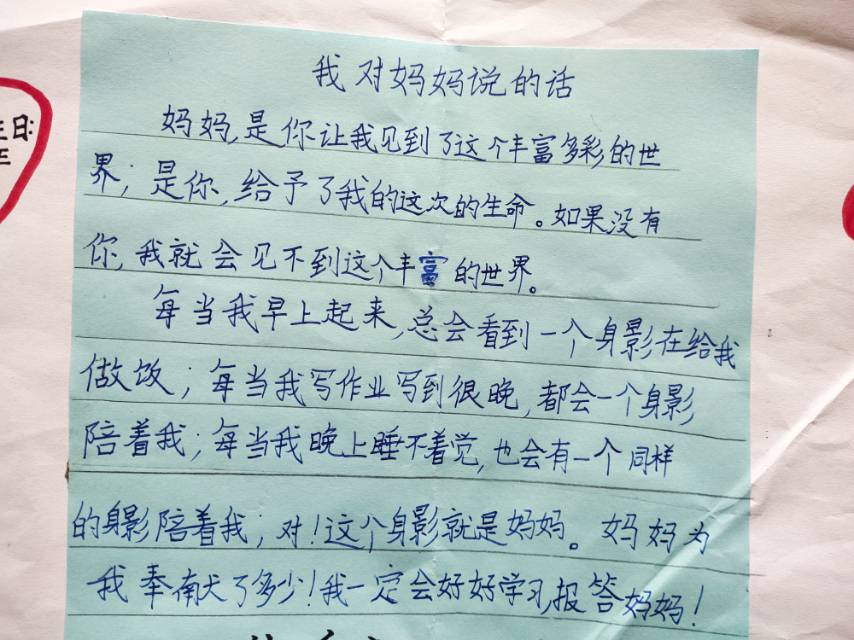 我对妈妈说的话
妈妈,是你让我见到了这个丰富多彩的世
界;是你,给予了我的这次的生命。如果没有
你,我就会见不到这个丰富的世界。
每当我早上起来,总会看到一个身影在给我
做饭;每当我写作业写到很晚,都会一个身影
陪着我;每当我晚上睡不着觉,也会有一个同样
的身影陪着我;对!这个身影就是妈妈。妈妈为
我奉献了多少!我一定会好好学习,报答妈妈!